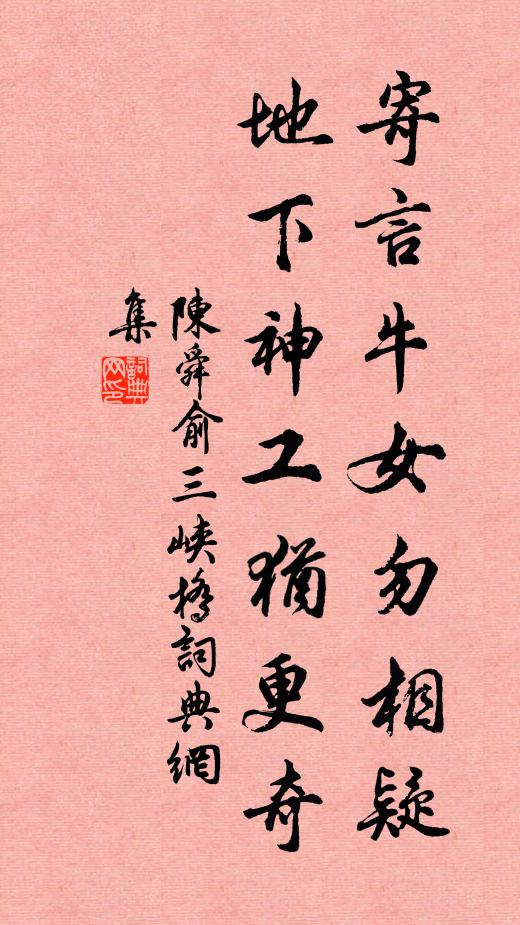 寄言牛女勿相疑
地下神工猶更奇
陳舜俞三峽橋詞典網
集
詞典網印